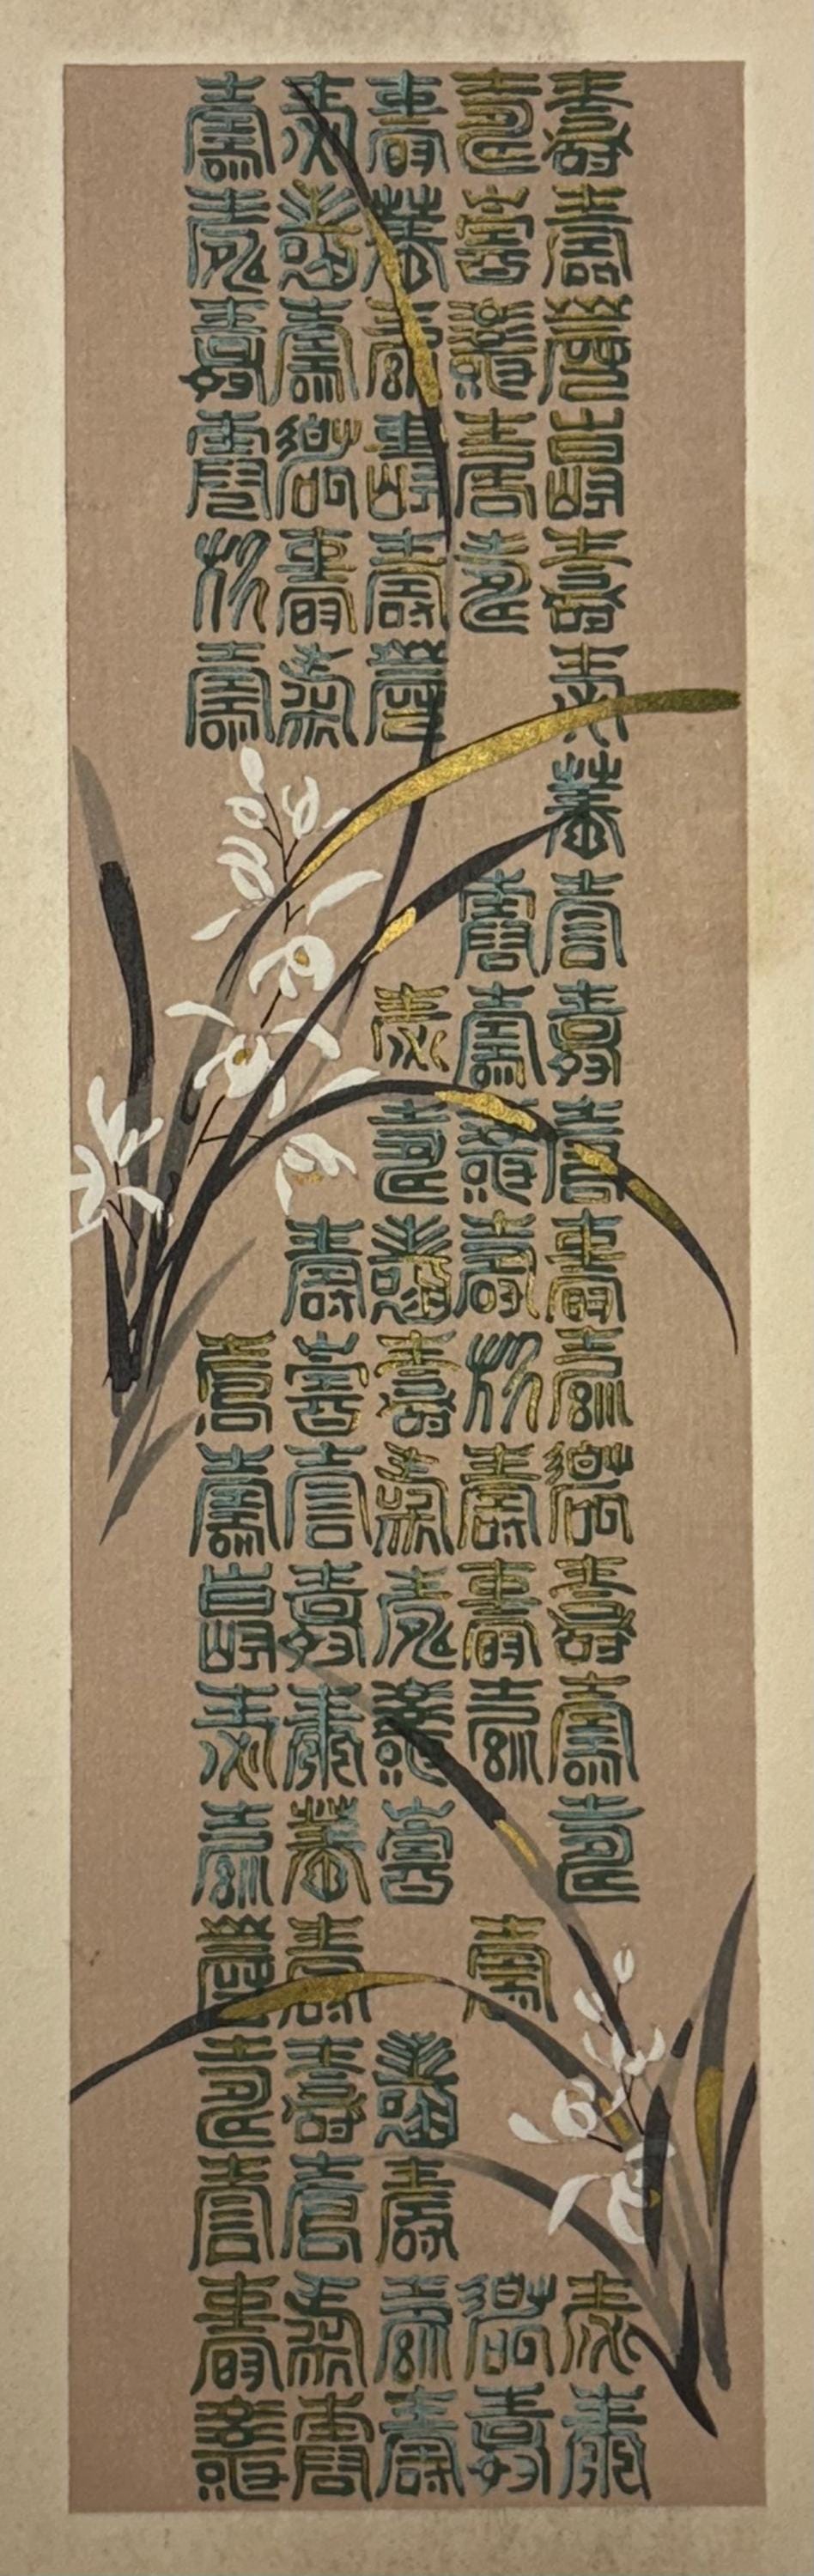 壽壽壽壽壽壽壽壽壽壽壽壽壽壽壽壽壽壽
壽壽壽壽壽壽壽壽壽壽壽壽壽壽壽壽
壽壽壽壽壽壽壽壽壽壽壽壽壽壽壽壽壽壽
壽壽壽壽壽壽壽壽壽壽壽壽壽壽壽壽壽
壽壽壽壽壽壽壽壽壽壽壽壽壽壽壽壽